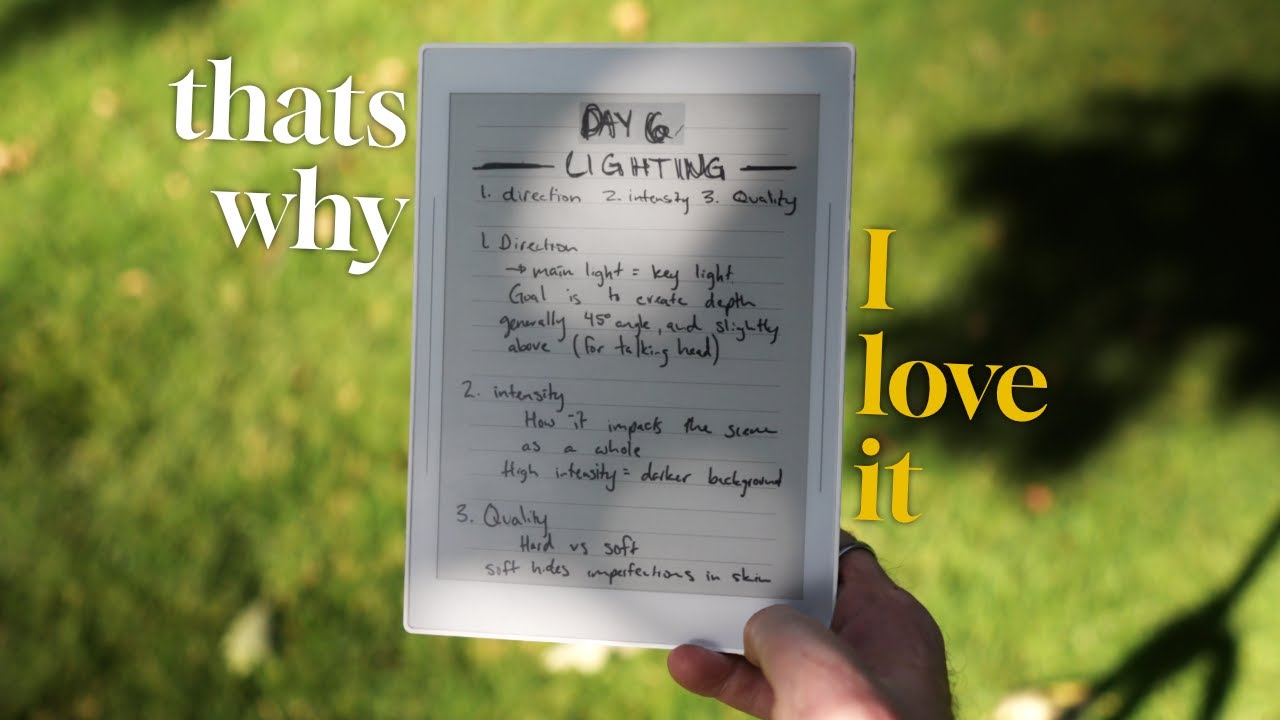 thats
why
I
love
it
DAY 6
LIGHTING
1. direction 2. intensity 3. Quality
1. Direction
→ main light = key light.
Goal is to create depth
generally 45° angle, and slightly
above (for talking head)
2. intensity
How it impacts the scene
as a whole
High intensity = darker background
3. Quality
Hard vs soft
soft hides imperfections in skin